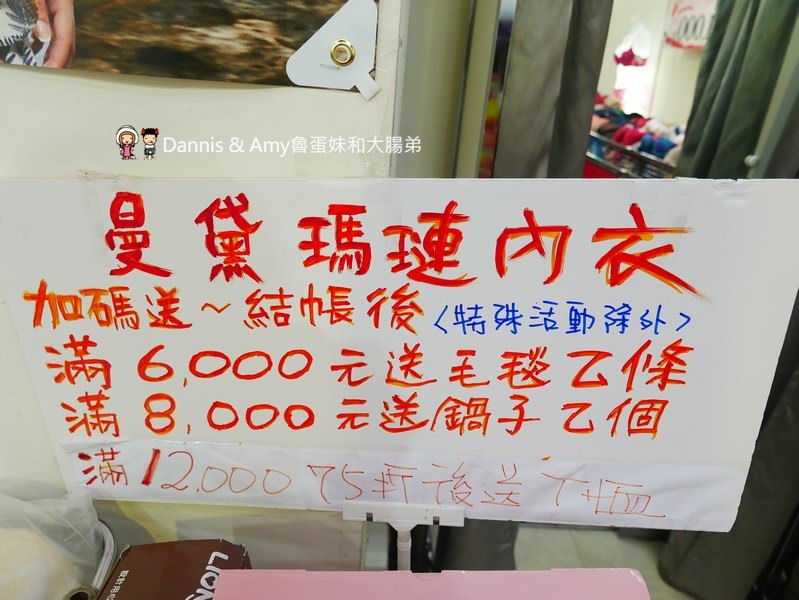 Dannis & Amy魯蛋妹和大腸弟
曼黛瑪璉內衣
加碼送~結帳後<特殊活動除外>
滿 6,000 元送毛毯乙條
滿 8,000 元送鍋子乙個
滿 12,000 75折後送
LION